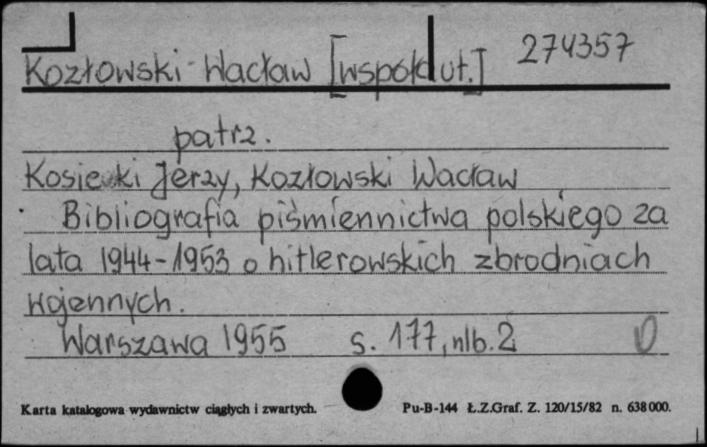 Kozłowski Wacław [współaut.] 274357
patrz.
Kosiecki Jerzy, Kozłowski Wacław
Bibliografia piśmiennictwa polskiego za
lata 1944-1953 o hitlerowskich zbrodniach
wojennych.
Warszawa 1955 s. 177, nlb. 2
Karta katalogowa wydawnictw ciągłych i zwartych. Pu-B-144 Ł.Z.Graf. Z. 120/15/82 n. 638000.